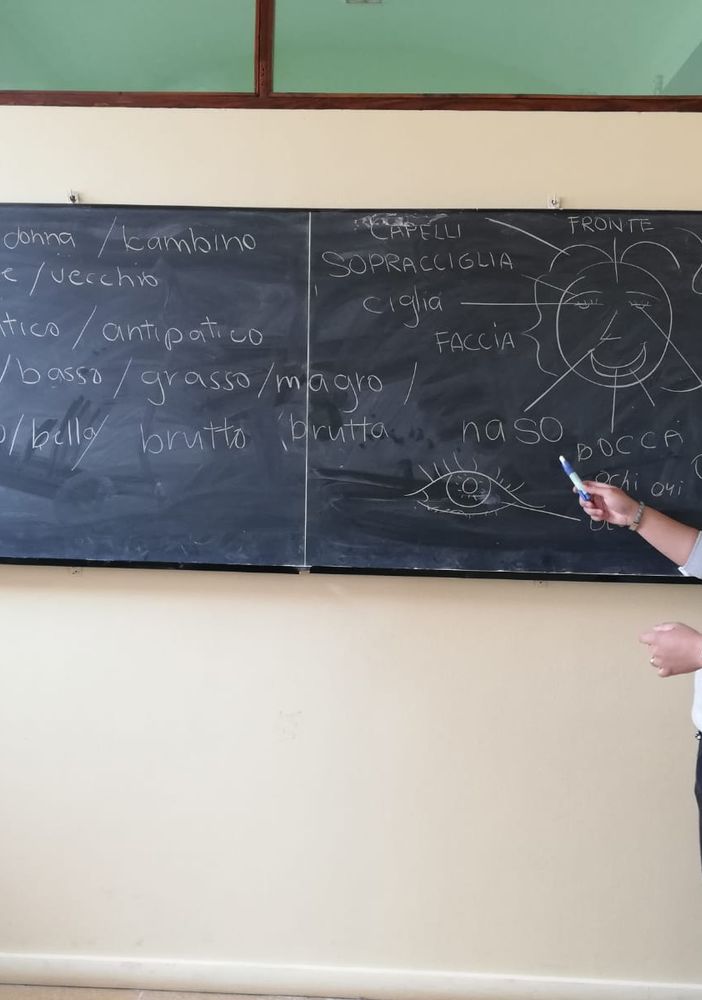 donna / bambino
e / vecchio
tico / antipatico
/ basso / grasso / magro /
o / bella brutto brutta
CAPELLI
FRONTE
SOPRACCIGLIA
ciglia
FACCIA
naso
BOCCA